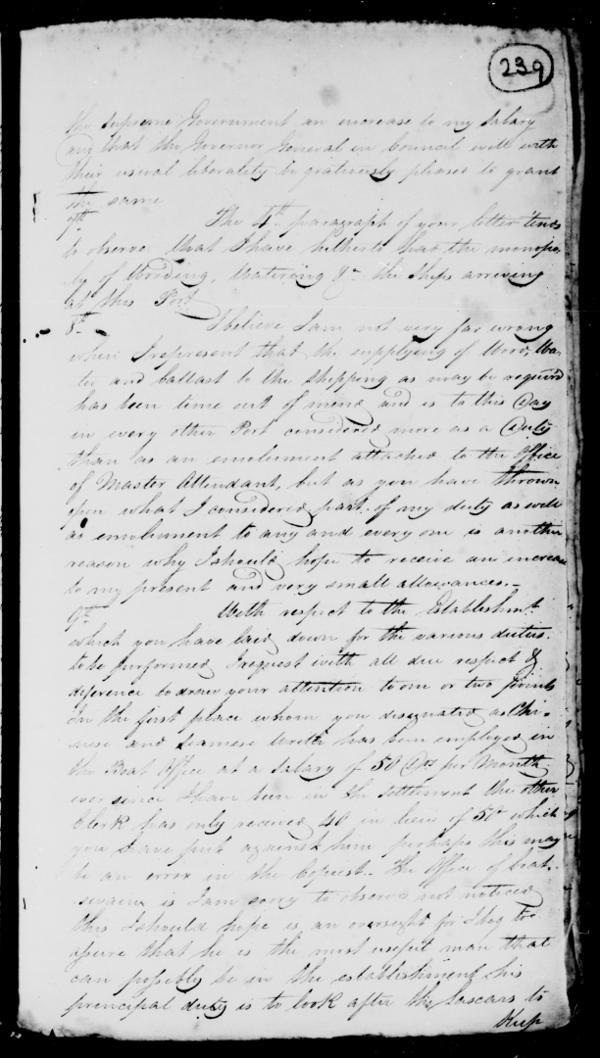 239
the Supreme Government an increase to my Salary
and that the Governor General in Council will with
their usual liberality be gratiously pleases to grant
the same
7th The 4th paragraph of your letter tends
to observe that I have hitherto had the monopo
ly of Wooding, Watering &c the Ships arriving
at this Port
8th I believe I am not very far wrong
when I represent that the supplying of Wood, Wa-
ter and ballast to the Shipping as may be required
has been time out of mind and is to this Day
in every other Port considered more as a Duty
than as an emolument attached to the Office
of Master Attendant, but as you have thrown
open what I considered part of my duty as well
as emolument to any and every one is another
reason why I should hope to receive an increase
to my present and very small allowances.-
9th With respect to the Establishmt
which you have laid down for the various duties
to be performed I request with all due respect &
deference to draw your attention to one or two points
In the first place whom you designated as Chi-
nese and Siamese Writer has been employed in
the Boat Office at a Salary of 50 Drs per Month
ever since I have been in the Settlement the other
Clerk has only received 40 in lieu of 50 which
you have put against him perhaps this may
be an error in the Copyist. The Office of boat-
swain is I am sorry to observe not noticed
this I should hope is an oversight for I beg to
assure that he is the most useful man that
can possibly be in the establishment his
principal duty is to look after the Lascars to
Keep